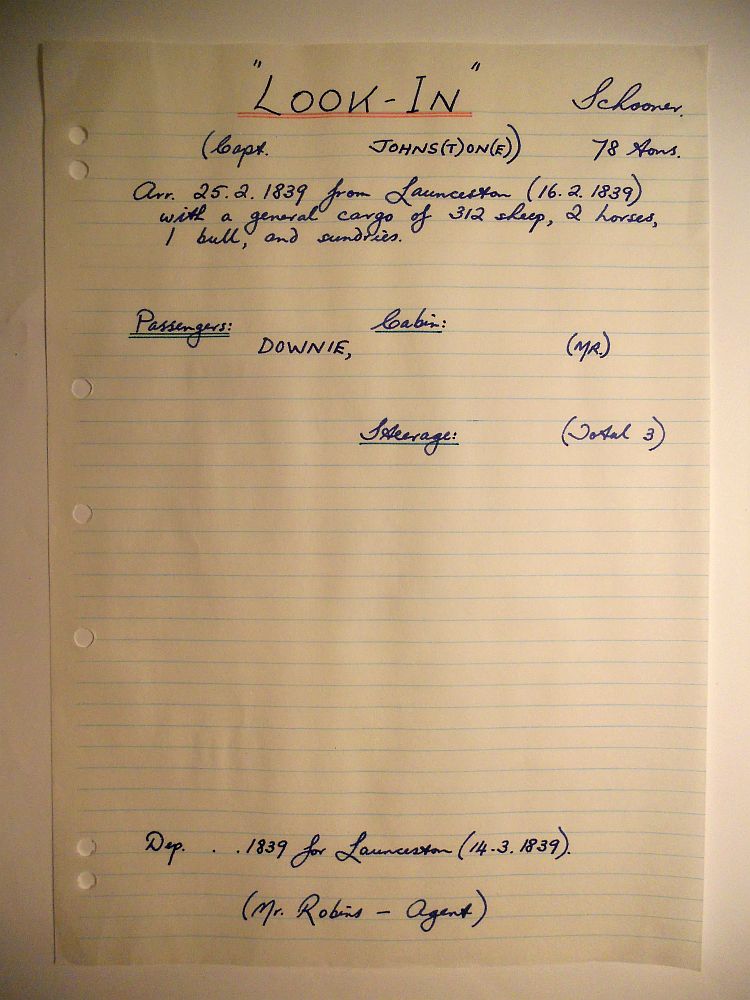 "LOOK-IN" Schooner.
(Capt. JOHNS(T)ON(E)) 78 tons.
Arr. 25.2.1839 from Launceston (16.2.1839)
with a general cargo of 312 sheep, 2 horses,
1 bull, and sundries.
Passengers: Cabin:
DOWNIE, (MR.)
Steerage: (Total 3)
Dep. . . 1839 for Launceston (14.3.1839).
(Mr. Robins - Agent)